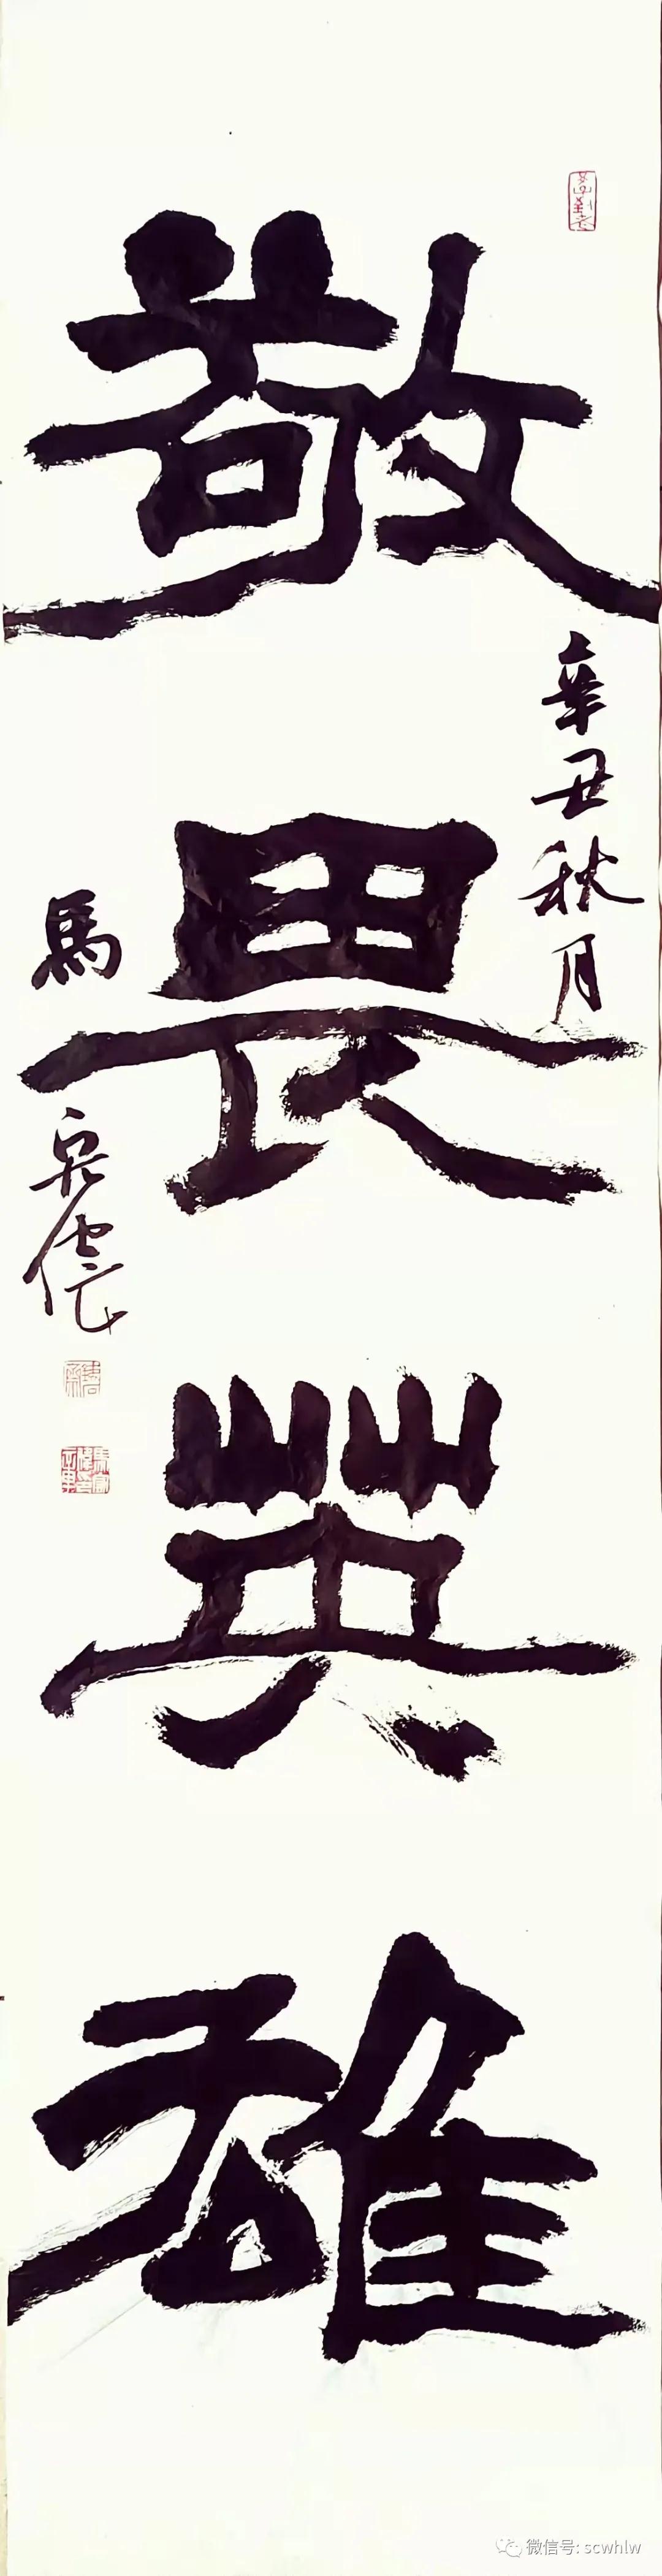 敬畏英雄
辛丑秋月
馬
微信号: scwhlw